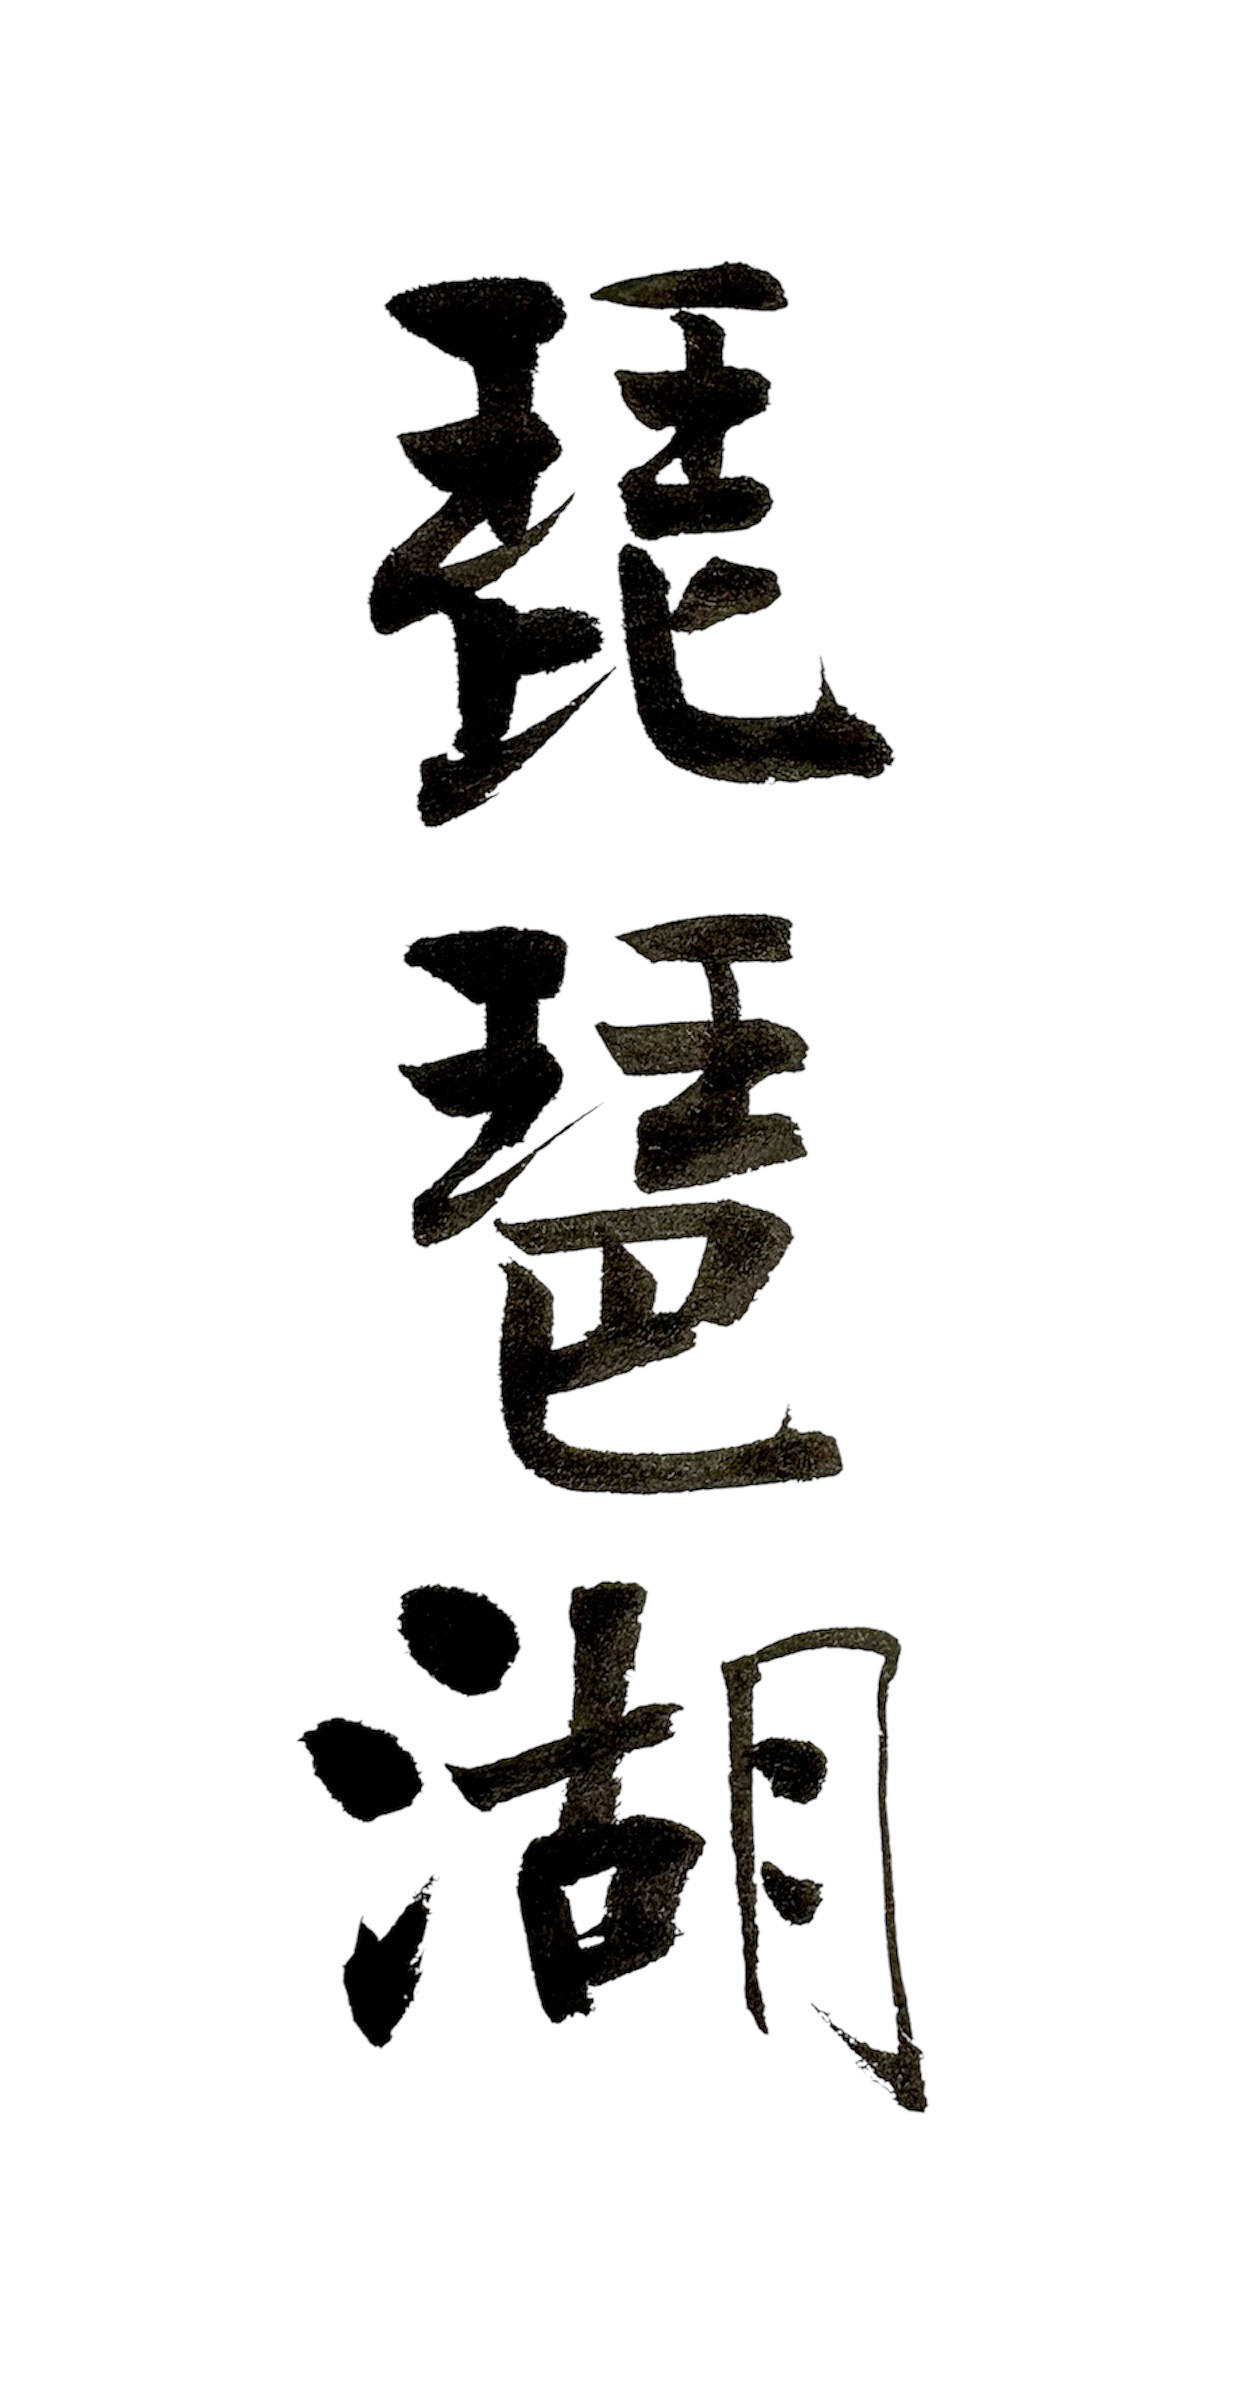 琵琶湖